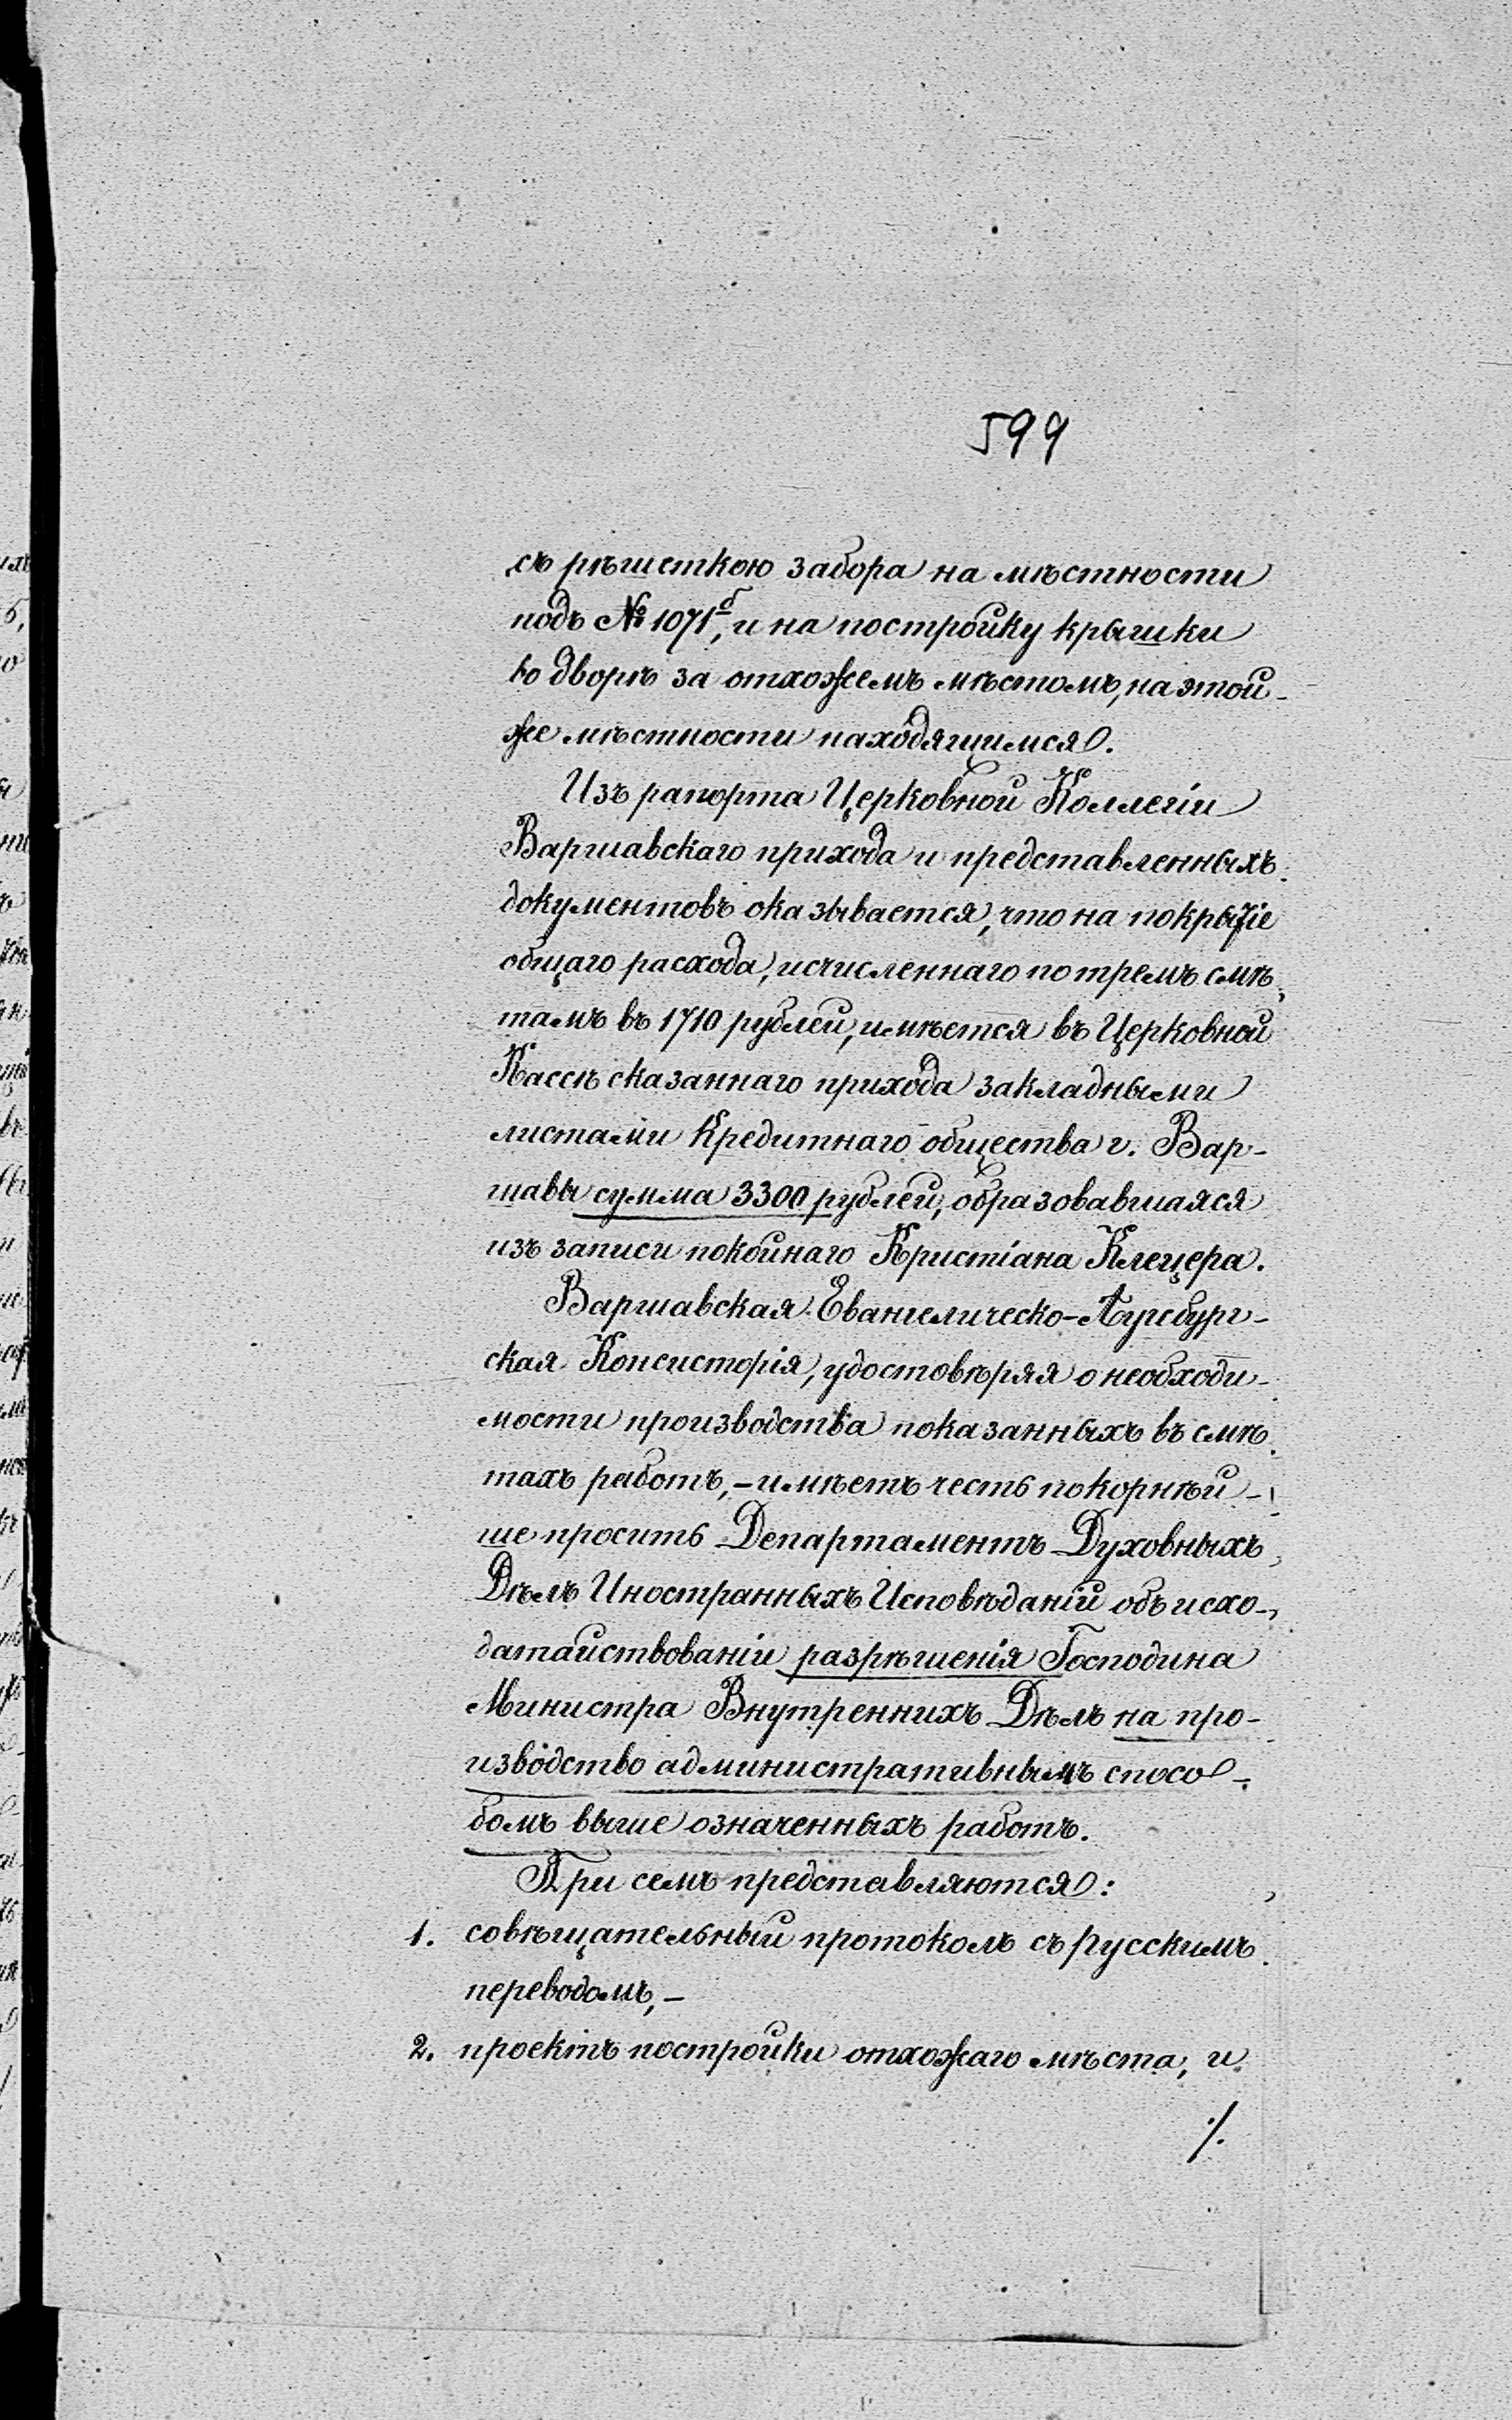 599
съ рѣшеткою забора на мѣстности
подъ № 1071б, и на постройку крышки
во дворѣ за отхожемъ мѣстомъ, на этой-
же мѣстности находящимся.
Изъ рапорта Церковной Коллегіи
Варшавскаго прихода и представленныхъ
документовъ оказывается, что на покрытіе
общаго расхода, исчисленнаго по тремъ смѣ-
тамъ въ 1710 рублей, имѣется въ Церковной
Кассѣ сказаннаго прихода закладными
листами Кредитнаго общества г. Вар-
шавы сумма 3300 рублей, образовавшаяся
изъ записи покойнаго Кристіана Клецера.
Варшавская Евангелическо-Аугсбург-
ская Консисторія, удостовѣряя о необходи-
мости производства показанныхъ въ смѣ-
тахъ работъ, - имѣетъ честь покорнѣй-
ше просить Департаментъ Духовныхъ
Дѣлъ Иностранныхъ Исповѣданій объ исхо-
датайствованіи разрѣшенія Господина
Министра Внутреннихъ Дѣлъ на про-
изводство административнымъ спосо-
бомъ выше означенныхъ работъ.
При семъ представляются:
1. совѣщательный протоколъ съ русскимъ
переводомъ, -
2. проектъ постройки отхожаго мѣста, и
./.